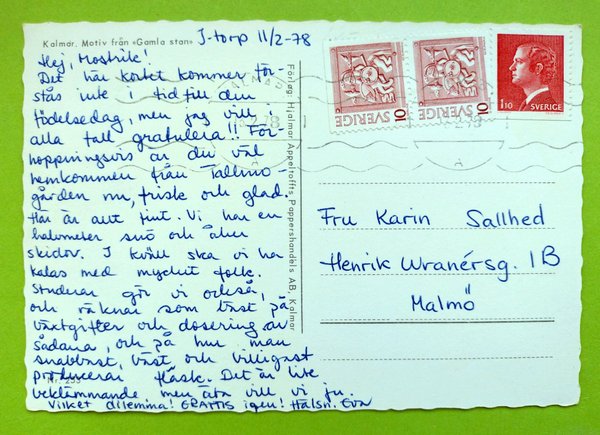 Kalmar. Motiv från «Gamla stan»
J-torp 11/2-78
Hej, Mostrik!
Det här kortet kommer för-
stås inte i tid till din
födelsedag, men jag vill i
alla fall gratulera!! För-
hoppningsvis är du väl
hemkommen från Tallmo-
gården nu, frisk och glad.
Här är allt fint. Vi har en
halvmeter snö och åker
skidor. I kväll ska vi ha
kalas med mycket folk.
Studerar gör vi också,
och räknar som bäst på
växtgifter och dosering av
sådana, och på hur man
snabbast, bäst och billigast
producerar fläsk. Det är lite
beklämmande men äta vill vi ju.
Vilket dilemma! GRATTIS igen! Hälsn. Eva
Nr. 253
Förlag: Hjalmar Appeltoffts Pappershandels AB, Kalmar
SVERIGE 10
SVERIGE 10
1,10 SVERIGE
Fru Karin Sallhed
Henrik Wranérsg. 1B
Malmö